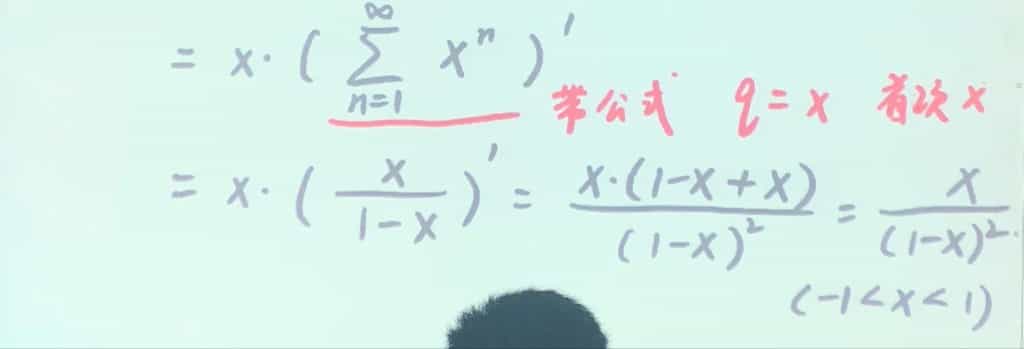 = x·(∑_{n=1}^{∞} x^n)' 带公式 q=x 首次x
= x·(x/(1-x))' = x·(1-x+x)/(1-x)^2 = x/(1-x)^2.
(-1<x<1)